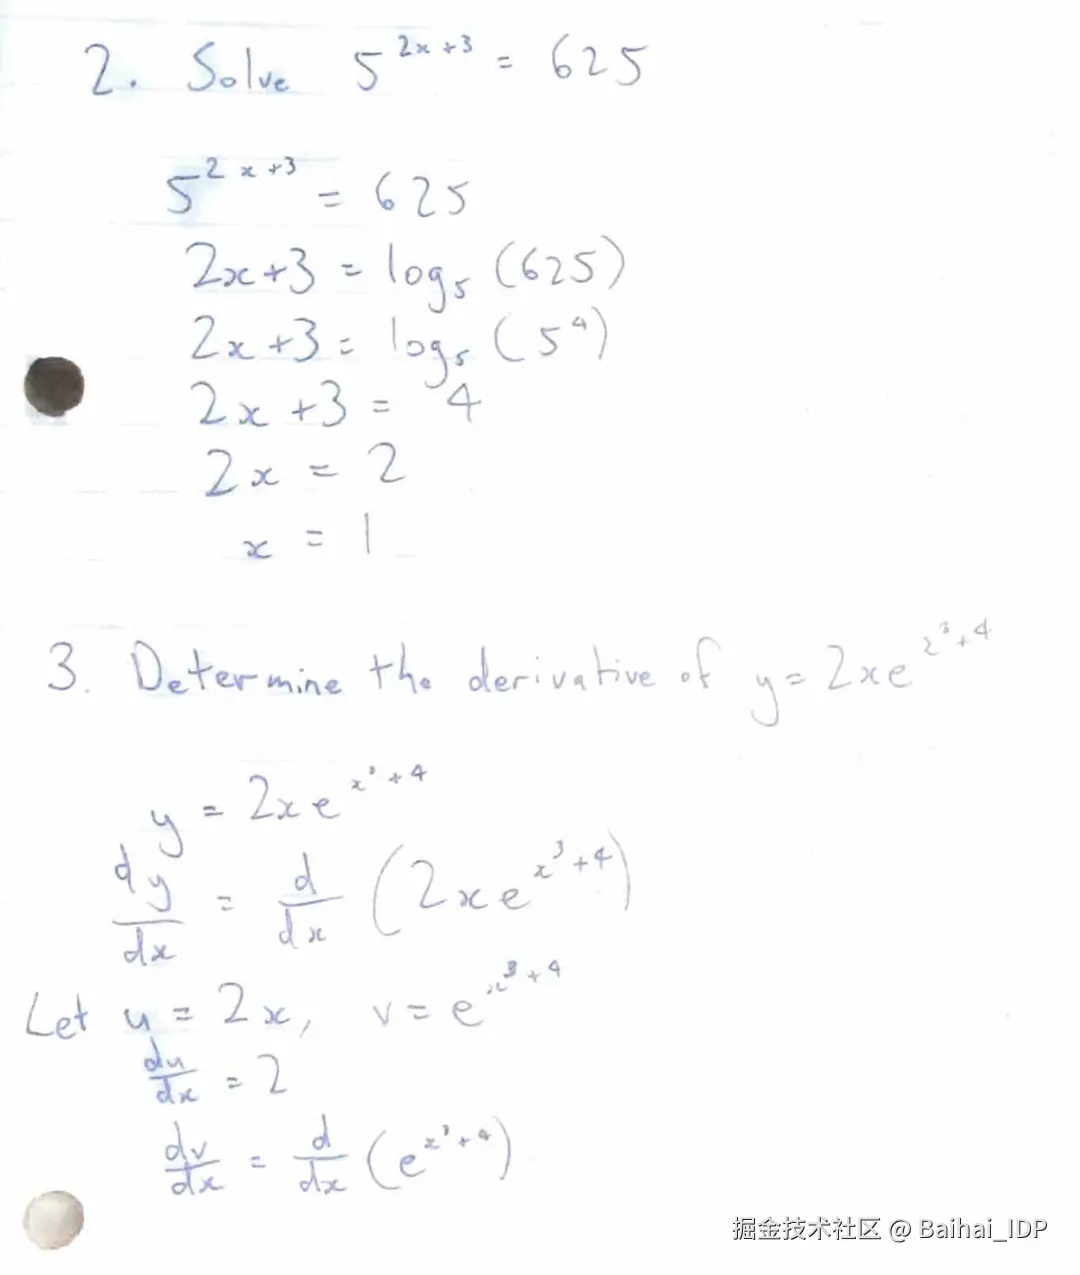 2. Solve 5^(2x+3) = 625
5^(2x+3) = 625
2x+3 = log₅ (625)
2x+3 = log₅ (5⁴)
2x+3 = 4
2x = 2
x = 1
3. Determine the derivative of y = 2xe^(x³+4)
y = 2xe^(x³+4)
dy/dx = d/dx (2xe^(x³+4))
Let u = 2x, v = e^(x³+4)
du/dx = 2
dv/dx = d/dx (e^(x³+4))
掘金技术社区 @ Baihai_IDP